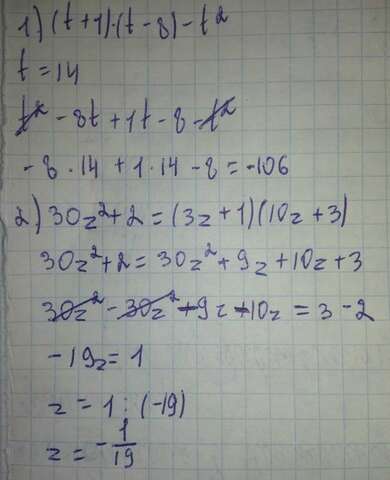 1) (t+1)·(t-8)-t²
t = 14
t² - 8t + 1t - 8 - t²
- 8 · 14 + 1 · 14 - 8 = -106
2) 30z² + 2 = (3z + 1)(10z + 3)
30z² + 2 = 30z² + 9z + 10z + 3
30z² - 30z² - 9z - 10z = 3 - 2
- 19z = 1
z = 1 : (-19)
z = - 1/19